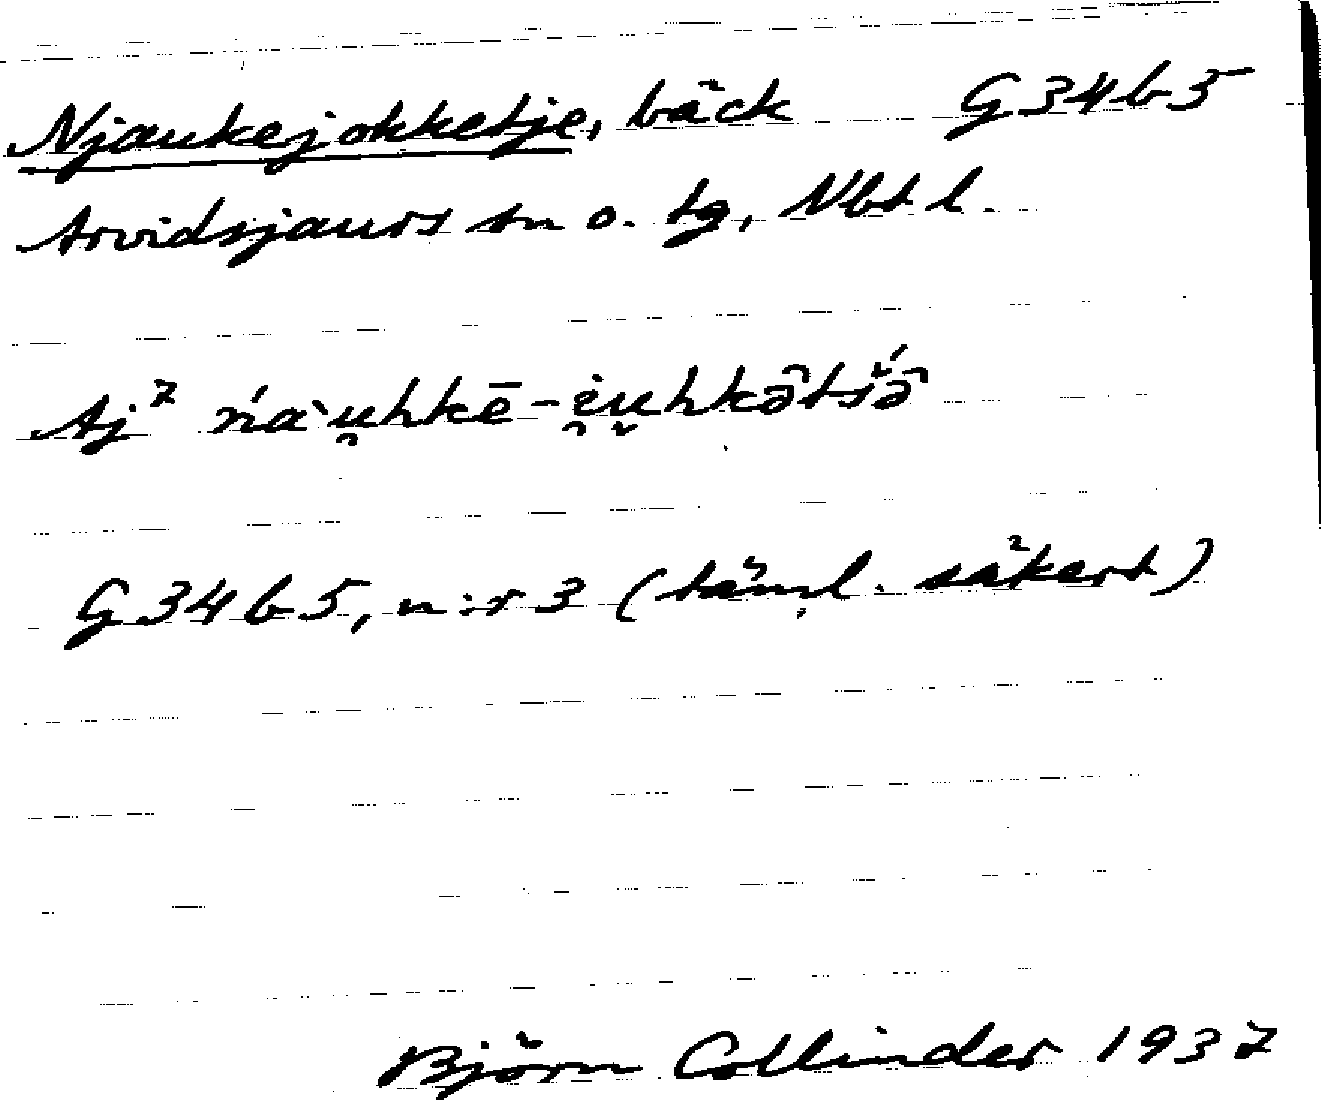 Njaukejokketje, bäck G34b5
Arvidsjaurs sn o. tg, Nbt l.
Aj² ńa`u̯hkē-i̯u̯hkə̑tśə̑
G34b5, n:r 3 (täml. säkert)
Björn Collinder 1937